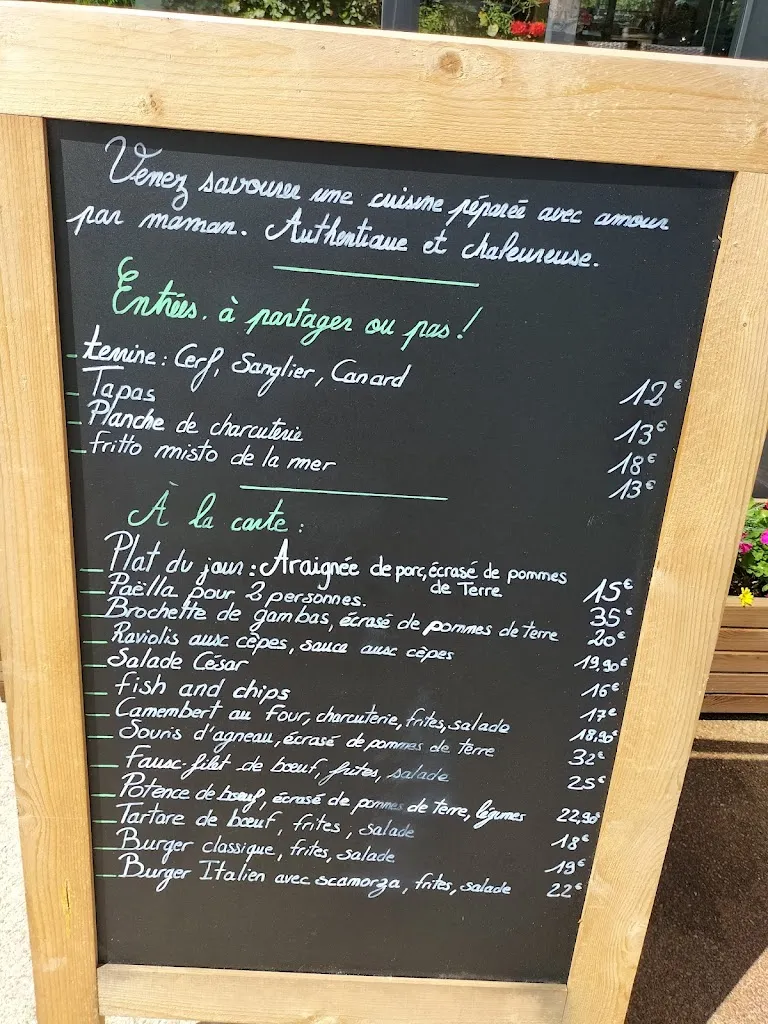 Venez savourer une cuisine péparée avec amour
par maman. Authentique et chaleureuse.
Entrées. à partager ou pas !
- terrine : Cerf, Sanglier, Canard 12€
- Tapas 13€
- Planche de charcuterie 18€
- fritto misto de la mer 13€
À la carte :
- Plat du jour : Araignée de porc, écrasé de pommes de Terre 15€
- Paëlla pour 2 personnes. 35€
- Brochette de gambas, écrasé de pommes de terre 20€
- Raviolis aux cèpes, sauce aux cèpes 19,90€
- Salade César 16€
- fish and chips 17€
- Camembert au four, charcuterie, frites, salade 18,90€
- Souris d'agneau, écrasé de pommes de terre 32€
- Faux-filet de bœuf, frites, salade 25€
- Potence de bœuf, écrasé de pommes de terre, légumes 22,90€
- Tartare de bœuf, frites, salade 18€
- Burger classique, frites, salade 19€
- Burger Italien avec scamorza, frites, salade 22€